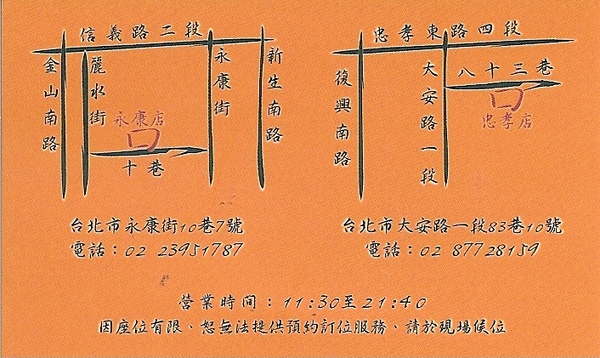 信義路二段
金山南路
麗水街
永康街
新生南路
永康店
十巷
台北市永康街10巷7號
電話：02 23951787
忠孝東路四段
復興南路
大安路一段
八十三巷
忠孝店
台北市大安路一段83巷10號
電話：02 87728159
營業時間：11:30至21:40
因座位有限、恕無法提供預約訂位服務、請於現場候位